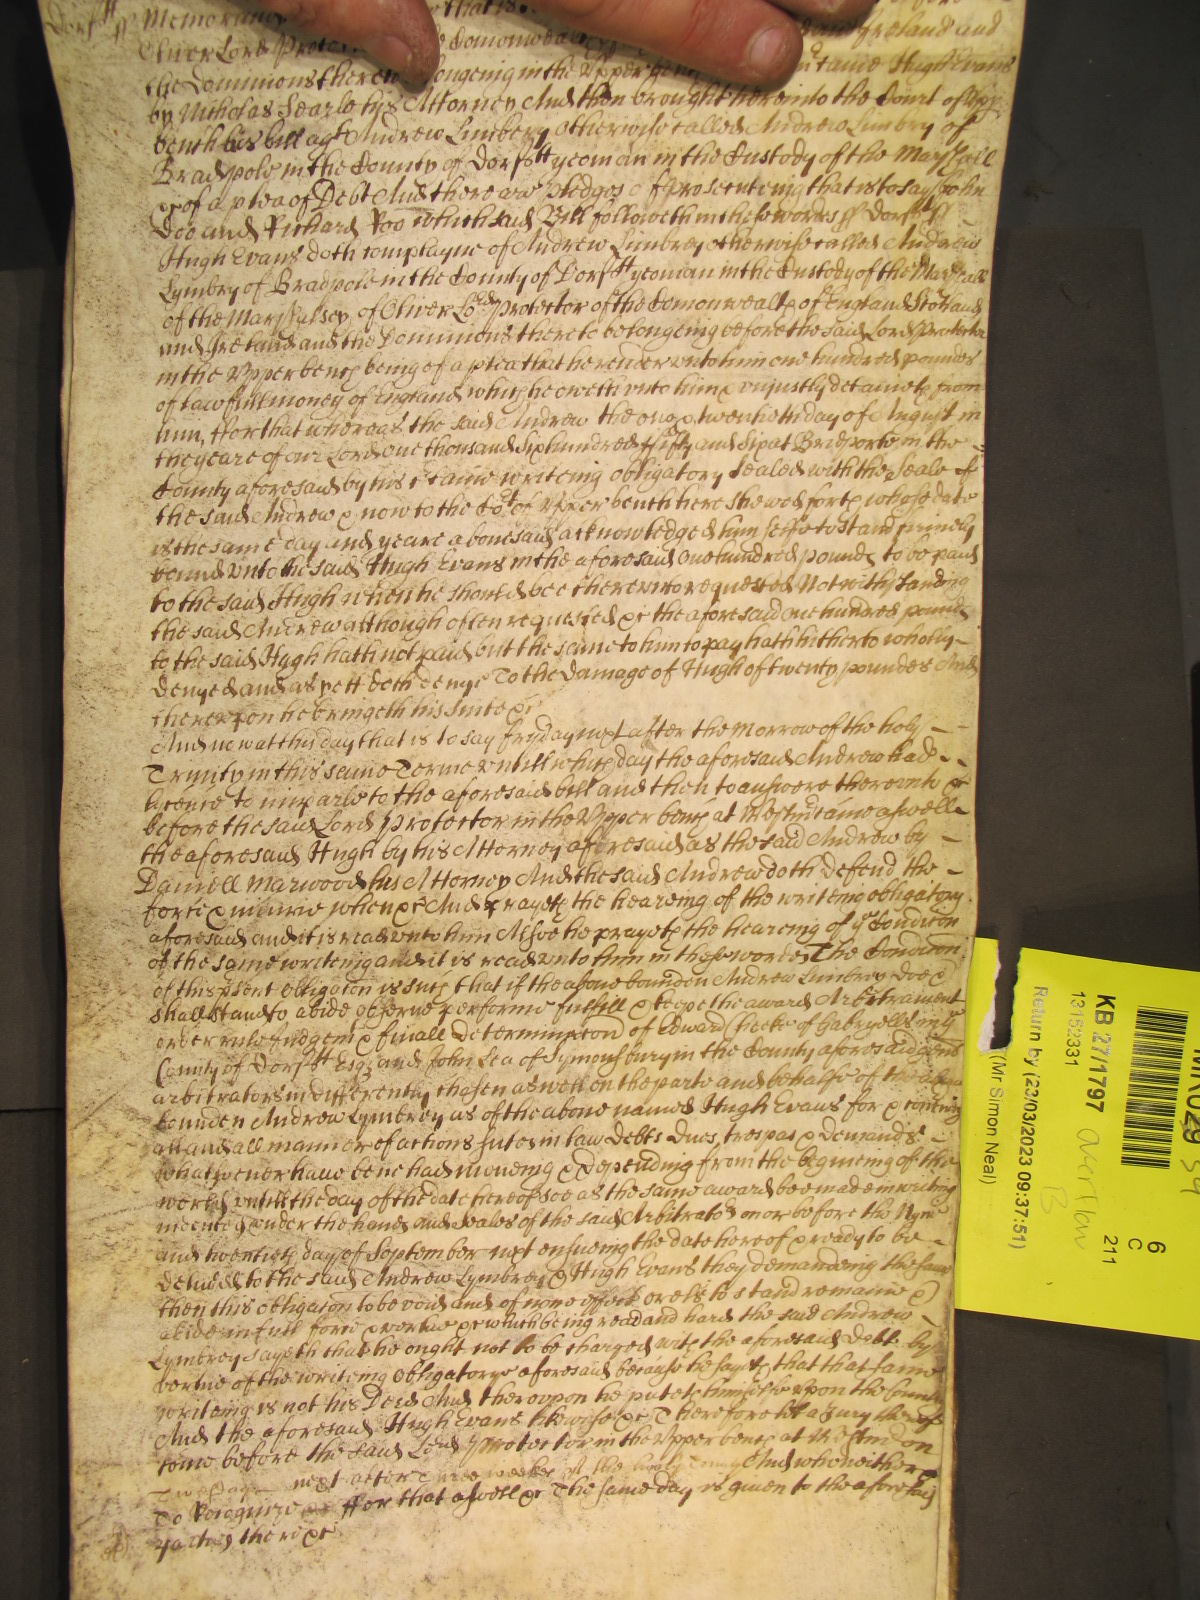 Dorsᵗᵗ ss Memorand that is
Oliver Lord Protec Comonwea Ireland and
the Dominions thereto longeing in the Upper came Hugh Evans
by Nicholas Searle his Attorney And then brought here into the Court of Upp
bench his bill agᵗ Andrew Limbery otherwise called Andrew Limbry of
Bradpole in the County of Dorsᵗᵗ yeoman in the Custody of the Marshall
&c of a plea of Debt And there are pledges of prosecuteing that is to say John
Doo and Richard Roo which said Bill followeth in these wordes ss Dorsᵗᵗ ss
Hugh Evans doth complayne of Andrew Limbrey otherwise called Andrew
Lymbry of Bradpole in the County of Dorsᵗᵗ yeoman in the Custody of the Marshall
of the Marshalsey of Oliver Lord Protector of the Comonwealth of England Scotland
and Ireland and the Dominions thereto belongeing before the said Lord Protector
in the Upper bench being of a plea that he render unto him one hundred poundes
of lawfull money of England which he oweth unto him & unjustly deteyneth from
him, ffor that whereas the said Andrew the one & twentieth day of August in
the yeare of our Lord one thousand six hundred fifty and six at Bridport in the
County aforesaid by his certaine writeing obligatory sealed with the seale of
the said Andrew & now to the Coᵗ of Upper bench here shewed forth whose date
is the same day and yeare abovesaid acknowledged him selfe to stand firmely
bound unto the said Hugh Evans in the aforesaid one hundred pounds to be paid
to the said Hugh when he should bee thereunto requested Notwithstanding
the said Andrew although often requested &c the aforesaid one hundred pounds
to the said Hugh hath not paid but the same to him to pay hath hitherto wholly
denyed and as yett doth denye To the damage of Hugh of twenty poundes And
thereupon he bringeth his suite &c
And now at this day that is to say fryday next after the Morrow of the holy
Trinity in this same Terme untill which day the aforesaid Andrew had
licence to imparle to the aforesaid bill and then to answere thereunto &c
before the said Lord Protector in the Upper bench at Westm came aswell
the aforesaid Hugh by his Attorney aforesaid as the said Andrew by
Daniell Marwood his Attorney And the said Andrew doth defend the
force & iniurie when &c And prayeth the heareing of the writeing obligatory
aforesaid and it is read unto him Alsoe he prayeth the heareing of yᵉ Condicon
of the same writeing and it is read unto him in these wordes The Condicon
of this psent obligacon is such that if the above bounden Andrew Limbrey doe &
shall stand to abide observe performe fulfill & keepe the award Arbitrament
order rule Judgemᵗ & finall Determinacon of Edward Cheeke of Gabryells in yᵉ
County of Dorsᵗᵗ Esqʳ and John Lea of Symonsbury in the County aforesaid gent
arbitrators indifferently chosen aswell on the parte and behalfe of the above
bounden Andrew Lymbrey as of the above named Hugh Evans for & concerning
all and all manner of actions suites in law debts dues, trespas & demands
whatsoever have bene had moveing & depending from the begineing of the
world untill the day of the date hereof soe as the same award bee made in writing
indented under the hands and seales of the said Arbitratoʳˢ on or before the Nyne
and twentieth day of September next ensueing the date hereof & ready to be
deliũed to the said Andrew Lymbrey & Hugh Evans they demandeing the same
then this obligacon to be void and of none effect or els to stand remaine &
abide in full force & vertue &c which being read and hard the said Andrew
Lymbrey sayeth that he ought not to be charged with the aforesaid Debt by
vertue of the writeing obligatorye aforesaid because he sayeth that that same
writeing is not his Deed And thereupon he puteth himselfe upon the Country
And the aforesaid Hugh Evans likewise &c Therefore let a Jury thereof
come before the said Lord Protector in the Upper bench at Westmr on
next after three weekes of the holy And who neither &c
To Recognize &c ffor that aswell &c The same day is given to the aforesaid
partyes there &c
MR 029
54
6
C
211
KB 27/1797
13152331
Return by (23/03/2023 09:37:51)
(Mr Simon Neal)
B